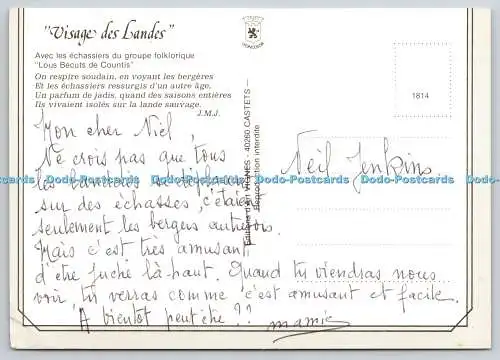 "Visage des Landes"
Avec les échassiers du groupe folklorique
"Lous Bécuts de Countis"
On respire soudain, en voyant les bergères
Et les échassiers ressurgis d'un autre âge,
Un parfum de jadis, quand des saisons entières
Ils vivaient isolés sur la lande sauvage.
J.M.J.
Mon cher Niel,
Ne crois pas que tous
les landais se déplacent
sur des échasses, c'étaient
seulement les bergers autrefois
Mais c'est très amusant
d'être juché là-haut. Quand tu viendras nous
voir tu verras comme c'est amusant et facile.
A bientôt peut être ??
mamie
Editions d'art VIGNES - 40260 CASTETS -
Reproduction interdite
1814
Neil Jenkins
Dodo-Postcards Dodo-Postcards Dodo-Postcards Dodo-Postcards Dodo-Postcards